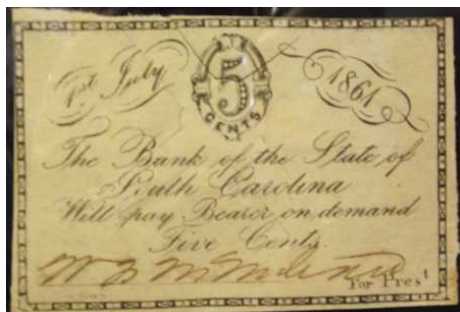 1st July
5
CENTS
1861
The Bank of the State of
South Carolina
Will pay Bearer on demand
Five Cents.
For Prest